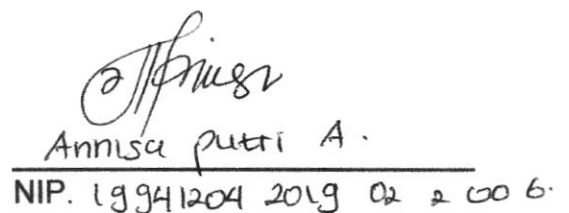 Annisa putri A.
NIP. 19941204 2019 02 2 006.